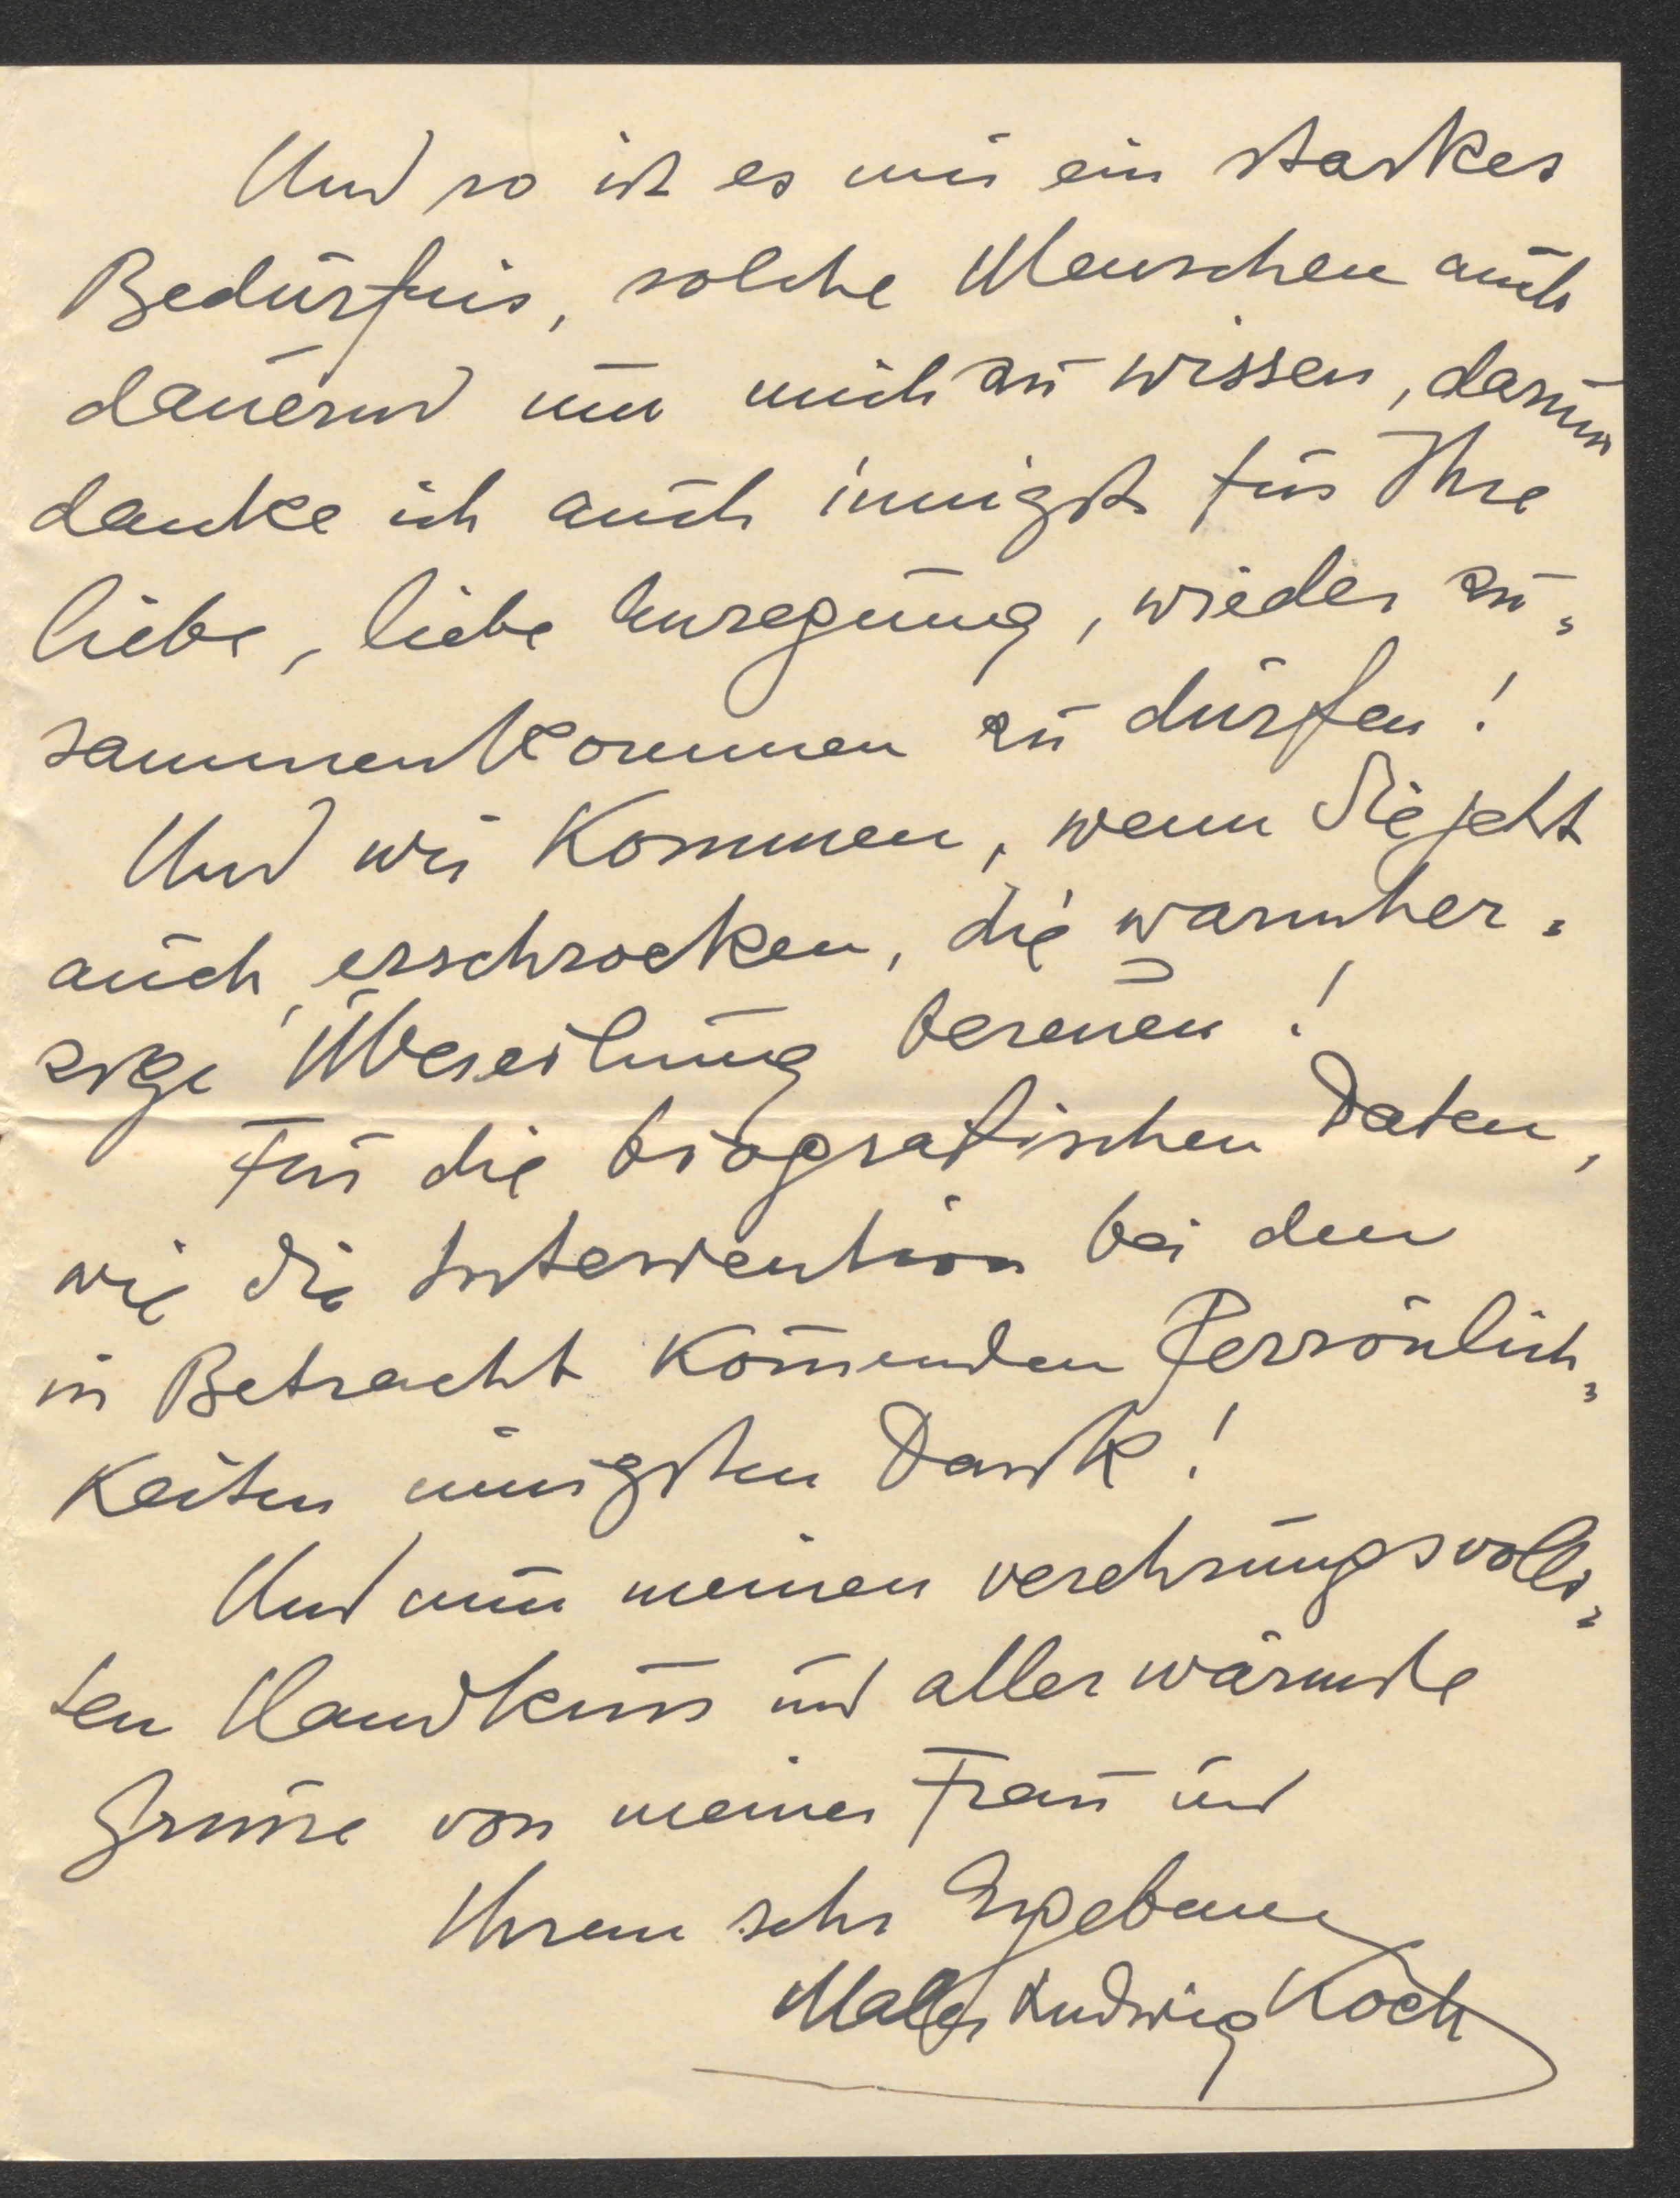 Und so ist es mir ein starkes
Bedürfnis, solche Menschen auch
dauernd um mich zu wissen, darum
danke ich auch innigst für Ihre
liebe, liebe Anregung, wieder zu-
sammenkommen zu dürfen!
Und wir kommen, wenn Sie jetzt
auch, erschrocken, die warmher-
zige Übereilung bereuen!
Für die biografischen Daten,
wie die Intervention bei den
in Betracht kom̅enden Persönlich-
keiten innigsten Dank!
Und nun meinen verehrungsvolls-
ten Handkuss und allerwärmste
Grüsse von meiner Frau und
Ihrem sehr Ergebenen
Maler Ludwig Koch